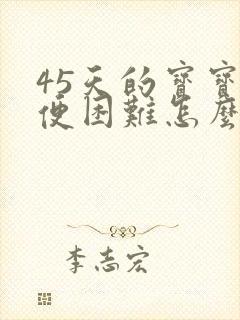 45天的寶寶
便困難怎麼
李志宏